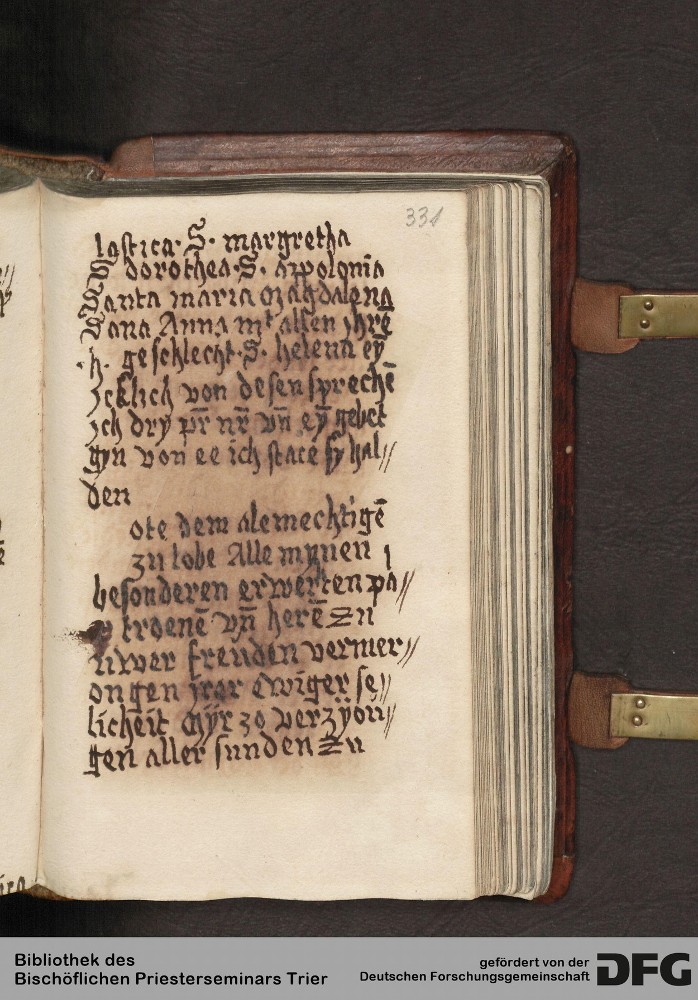 331
lastica· S· margretha
S dorothea· S· appolonia
Santa maria magdalena
Sana Anna mt allen yhrē
·h· geschlecht· S· helena eȳ
ycklich von desen sprechē
ych dry pr̄ nr̄ vn̄ eȳ gebet
gyn von ee ich stace sy hal//
den
ote dem alemechtigē
zu lobe Alle mynen
besonderen erwerten pa//
troenē vn̄ herē zu
uwer freuden vermer//
ongen yrer ewiger se//
licheit Myr zo verzyon//
gen aller sunden zu
Bibliothek des
Bischöflichen Priesterseminars Trier
gefördert von der
Deutschen Forschungsgemeinschaft
DFG